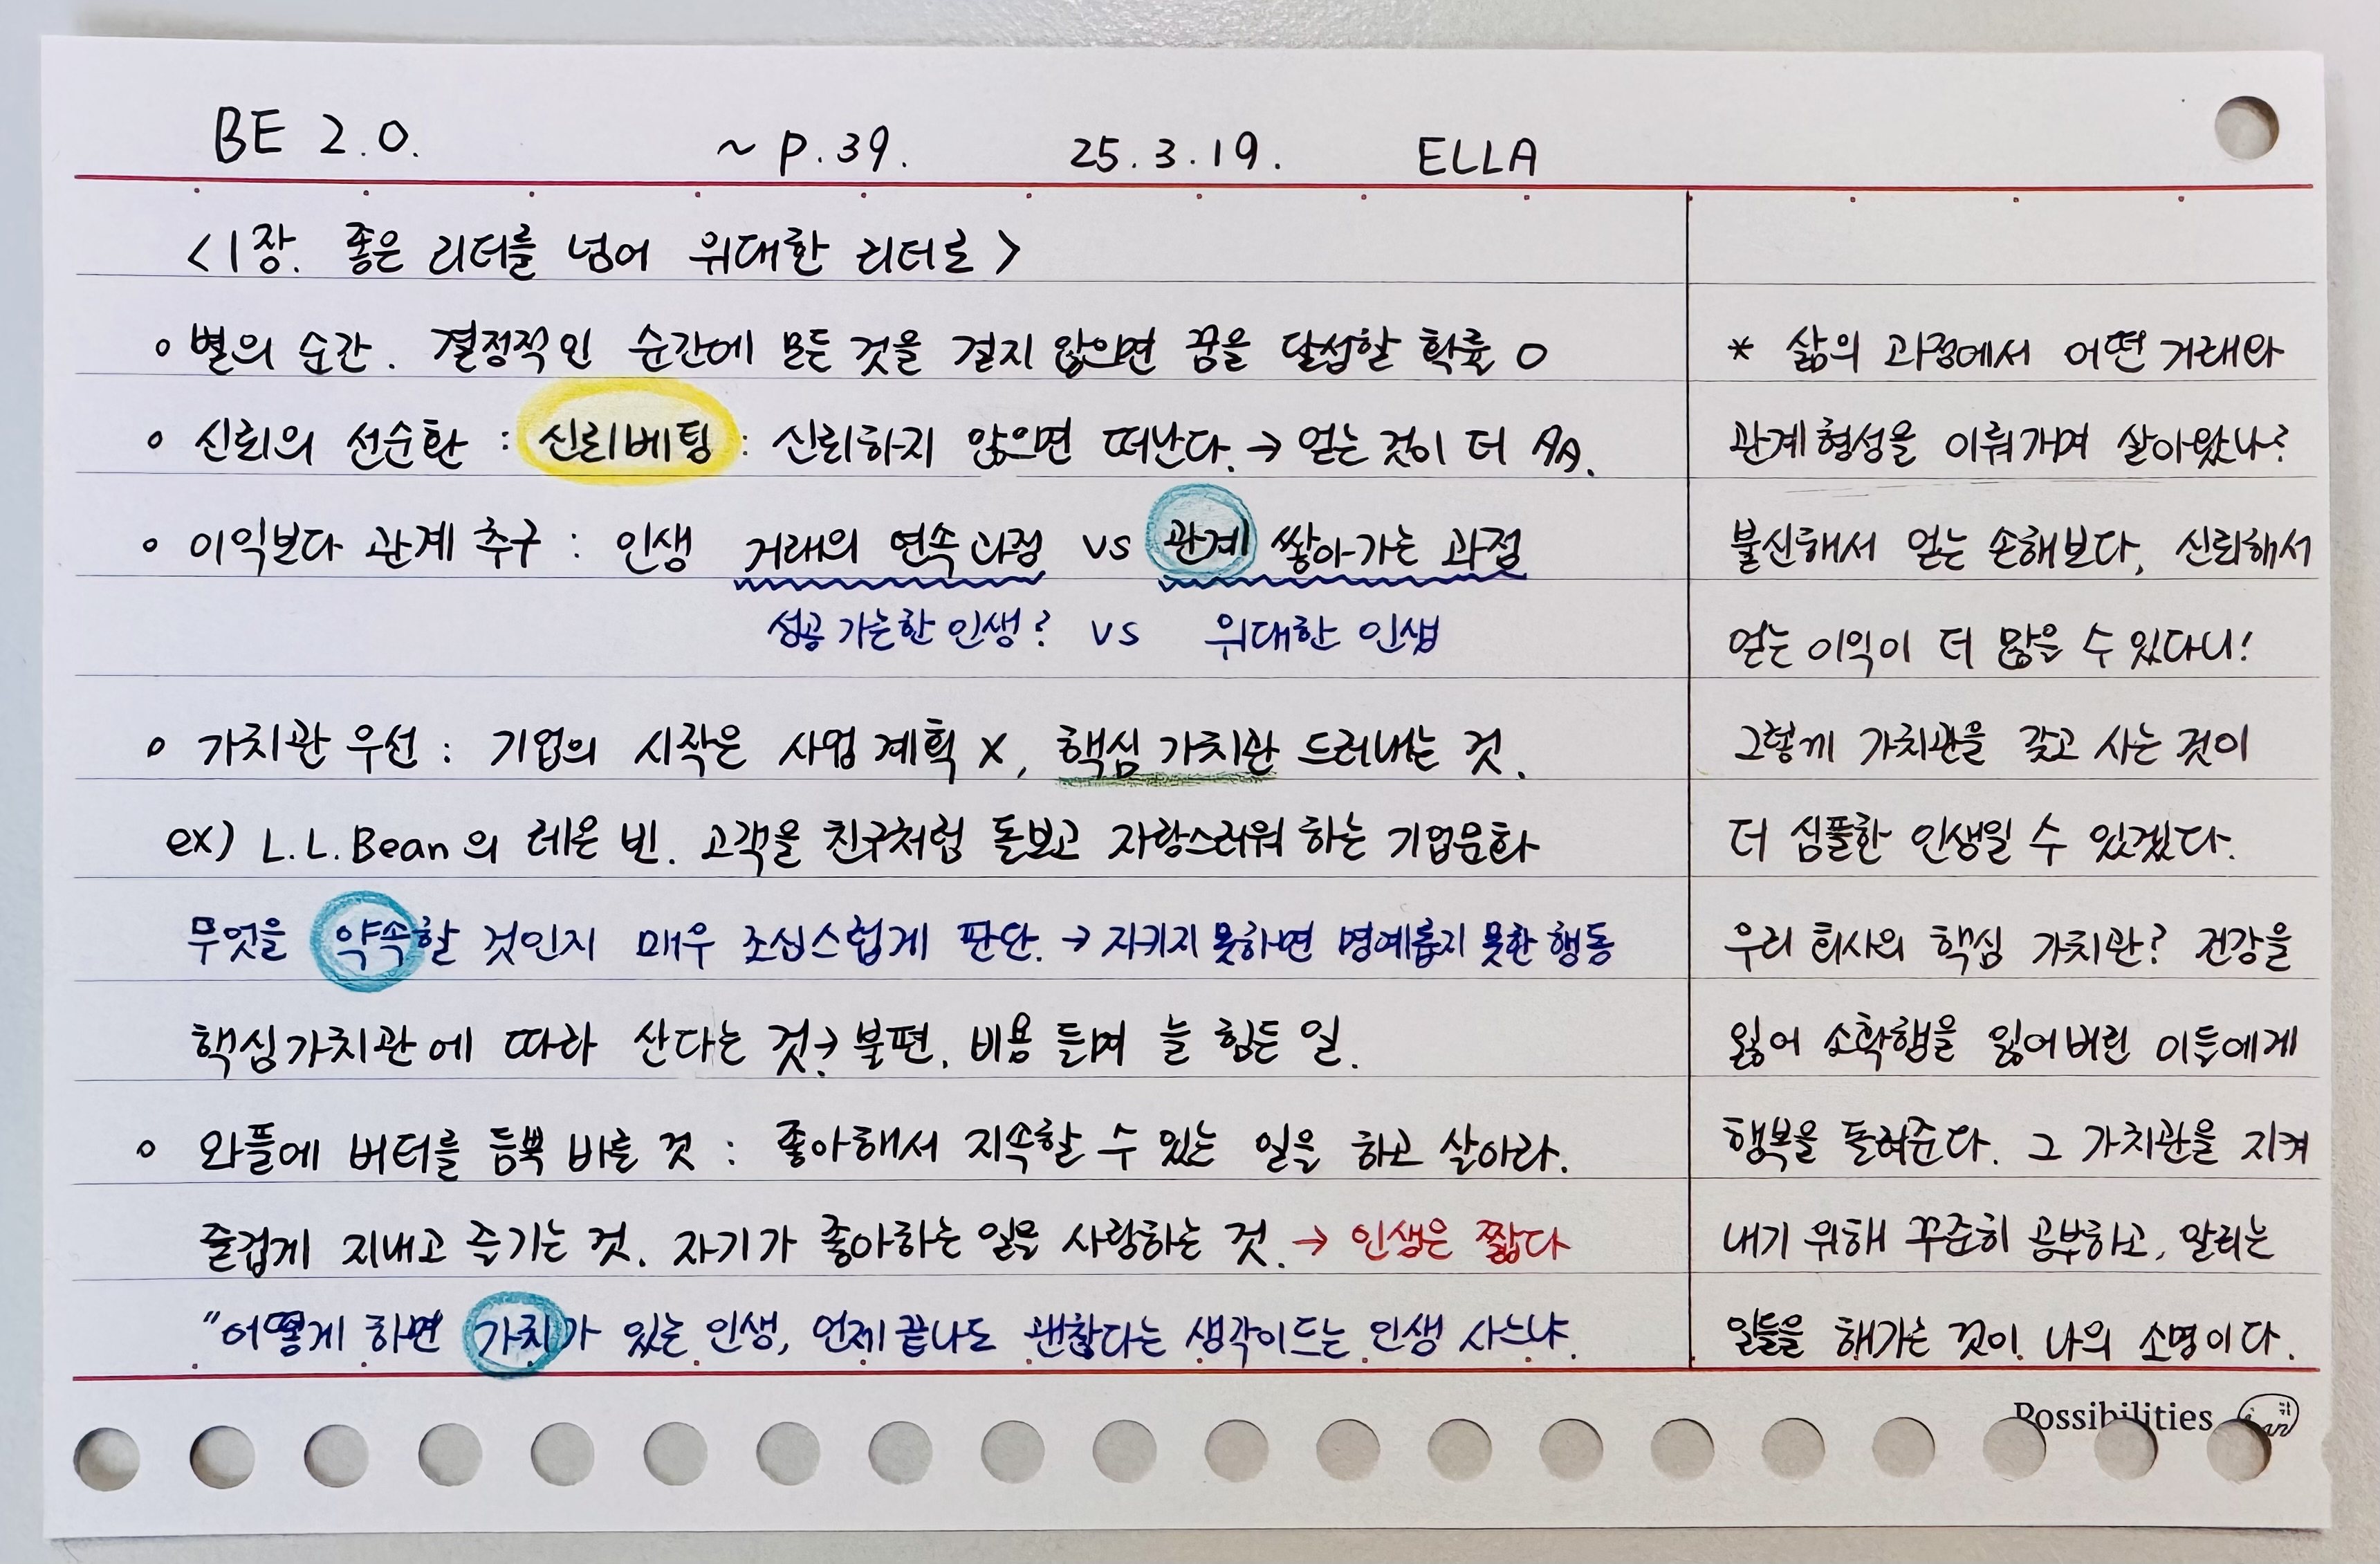 BE 2.0. ~ p.39. 25.3.19. ELLA
<1장. 좋은 리더를 넘어 위대한 리더로>
◦ 별의 순간. 결정적인 순간에 모든 것을 걸지 않으면 꿈을 달성할 확률 0
◦ 신뢰의 선순환 : 신뢰베팅 : 신뢰하지 않으면 떠난다. → 얻는 것이 더
◦ 이익보다 관계 추구 : 인생 거래의 연속 과정 vs 관계 쌓아가는 과정
성공 가능한 인생? vs 위대한 인생
◦ 가치관 우선 : 기업의 시작은 사업 계획 X, 핵심 가치관 드러내는 것.
ex) L.L.Bean의 레온 빈. 고객을 친구처럼 돌보고 자랑스러워 하는 기업문화
무엇을 약속할 것인지 매우 조심스럽게 판단. → 지키지 못하면 명예롭지 못한 행동
핵심가치관에 따라 산다는 것→ 불편, 비용 들며 늘 힘든 일.
◦ 와플에 버터를 듬뿍 바를 것 : 좋아해서 지속할 수 있는 일을 하고 살아라.
즐겁게 지내고 즐기는 것. 자기가 좋아하는 일을 사랑하는 것. → 인생은 짧다
"어떻게 하면 가치가 있는 인생, 언제 끝나도 괜찮다는 생각이드는 인생 사느냐.
* 삶의 과정에서 어떤 거래와
관계형성을 이뤄가며 살아왔나?
불신해서 얻는 손해보다, 신뢰해서
얻는 이익이 더 많을 수 있다니!
그렇게 가치관을 갖고 사는 것이
더 심플한 인생일 수 있겠다.
우리 회사의 핵심 가치관? 건강을
잃어 소확행을 잃어버린 이들에게
행복을 돌려준다. 그 가치관을 지켜
내기 위해 꾸준히 공부하고, 알리는
일들을 해가는 것이 나의 소명이다.
Possibilities